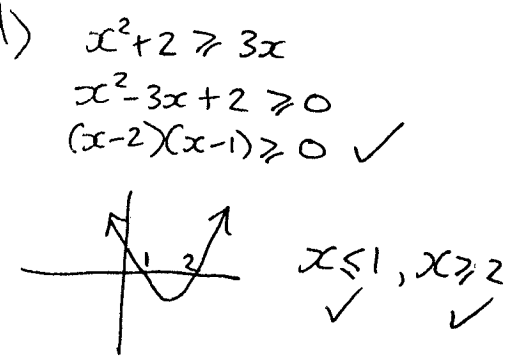 1) x²+2 ⩾ 3x
x²-3x+2 ⩾ 0
(x-2)(x-1) ⩾ 0 ✓
1 2
x⩽1, x⩾2
✓ ✓